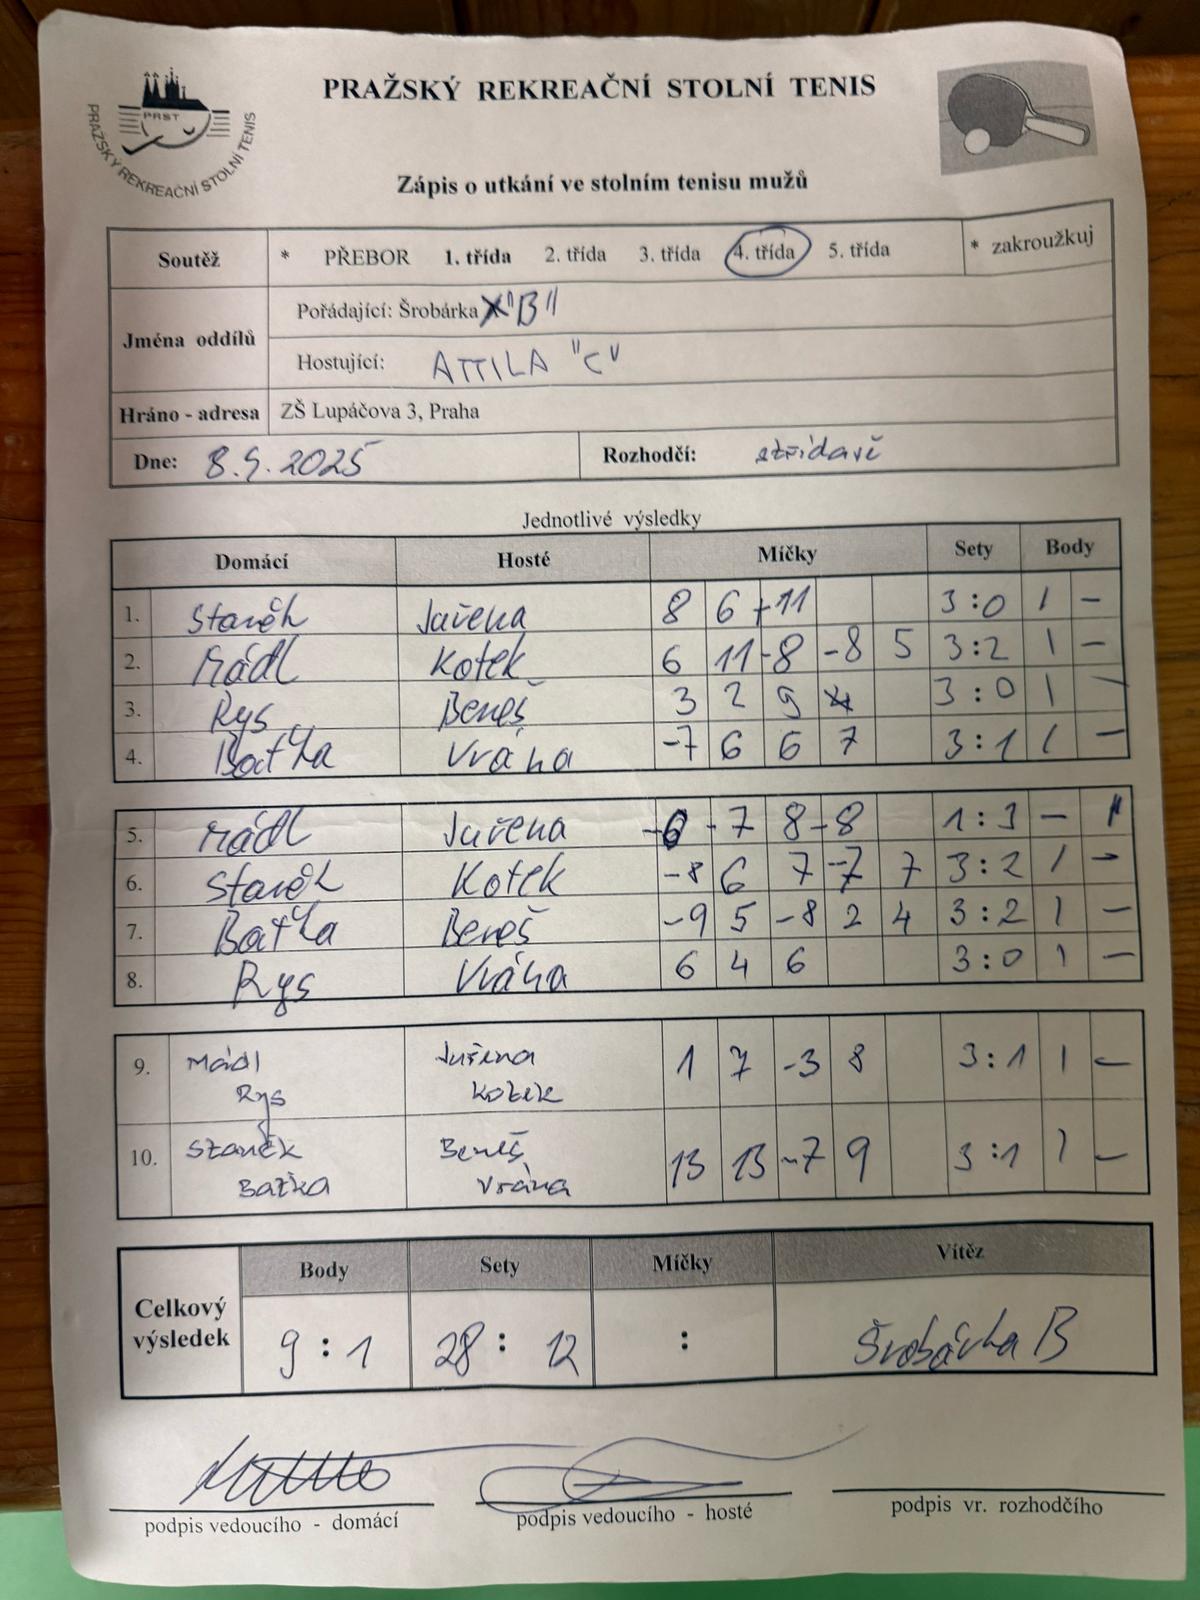 PRAŽSKÝ REKREAČNÍ STOLNÍ TENIS
PRST
PRAŽSKÝ REKREAČNÍ STOLNÍ TENIS
Zápis o utkání ve stolním tenisu mužů
Soutěž * PŘEBOR 1. třída 2. třída 3. třída 4. třída 5. třída * zakroužkuj
Jména oddílů
Pořádající: Šrobárka "B"
Hostující: ATTILA "C"
Hráno - adresa ZŠ Lupáčova 3, Praha
Dne: 8.9.2025 Rozhodčí: střídavě
Jednotlivé výsledky
Domácí Hosté Míčky Sety Body
1. Staněk Juřena 8 6 11 3:0 1 -
2. Mádl Kotek 6 11 -8 -8 5 3:2 1 -
3. Rys Beneš 3 2 9 3:0 1 -
4. Baťka Vrána -7 6 6 7 3:1 1 -
5. Mádl Juřena -6 -7 8 -8 1:3 - 1
6. Staněk Kotek -8 6 7 -7 7 3:2 1 -
7. Baťka Beneš -9 5 -8 2 4 3:2 1 -
8. Rys Vrána 6 4 6 3:0 1 -
9. Mádl Juřena 1 7 -3 8 3:1 1 -
Rys Kotek
10. Staněk Beneš 13 13 -7 9 3:1 1 -
Baťka Vrána
Celkový výsledek
Body Sety Míčky Vítěz
9 : 1 28 : 12 : Šrobárka B
podpis vedoucího - domácí podpis vedoucího - hosté podpis vr. rozhodčího